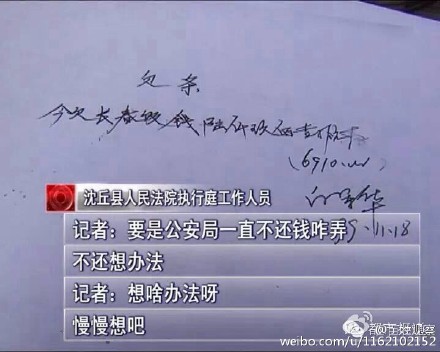 欠条
今欠长春饭钱陆仟玖佰壹
(6910.00)
9.11.18
沈丘县人民法院执行庭工作人员
记者：要是公安局一直不还钱咋弄
不还想办法
记者：想啥办法呀
慢慢想吧
weibo.com/u/1162102152